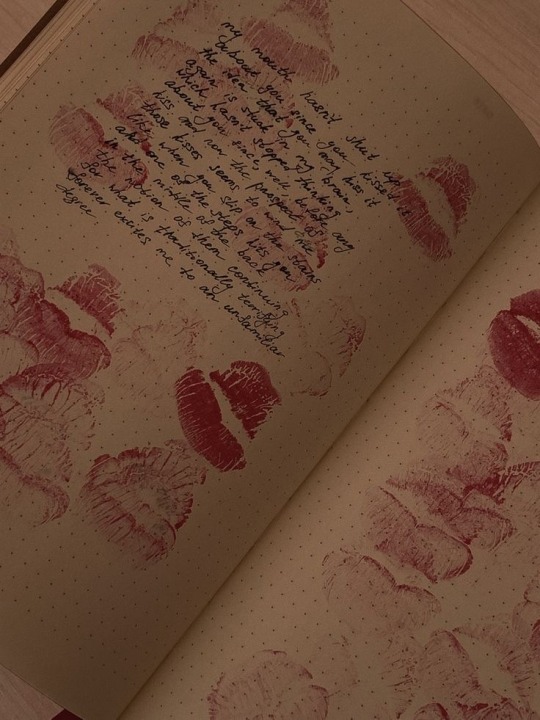 my mouth hasn't shut up
about you since you kissed it.
the idea that you may kiss it
again is stuck in my brain,
which hasn't stopped thinking
about you since, well, before any
kiss and now the prospect of
those kisses seems to wind me
like when you slip on the stairs
and one of the steps hits you
in the middle of the back
the notion of them continuing
for what is traditionally terrifying
forever excites me to an unfamiliar
degree